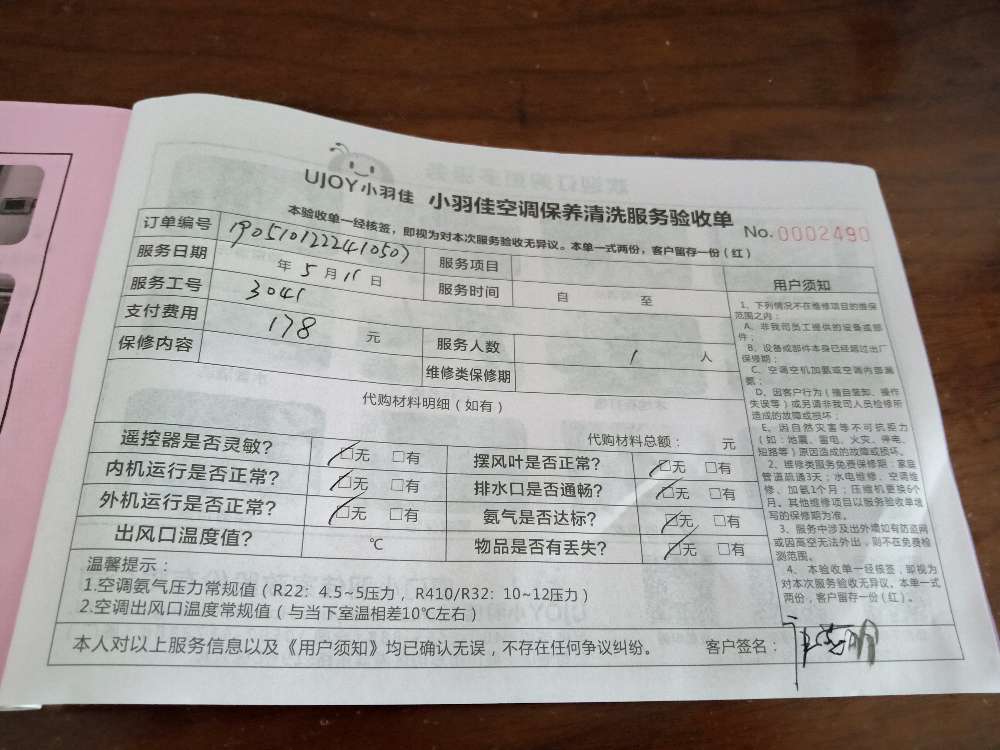 UJOY小羽佳 小羽佳空调保养清洗服务验收单
No.0002490
本验收单一经核签，即视为对本次服务验收无异议。本单一式两份，客户留存一份（红）
订单编号 1905101222410507 服务项目
服务日期 年 5 月 11 日 服务时间 自 至
服务工号 3041
支付费用 178 元 服务人数 1 人
保修内容 维修类保修期
代购材料明细（如有）
代购材料总额： 元
遥控器是否灵敏? □无 □有 摆风叶是否正常? □无 □有
内机运行是否正常? □无 □有 排水口是否通畅? □无 □有
外机运行是否正常? □无 □有 氨气是否达标? □无 □有
出风口温度值? ℃ 物品是否有丢失? □无 □有
温馨提示：
1.空调氨气压力常规值（R22：4.5~5压力，R410/R32：10~12压力）
2.空调出风口温度常规值（与当下室温相差10℃左右）
本人对以上服务信息以及《用户须知》均已确认无误，不存在任何争议纠纷。 客户签名：
用户须知
1、下列情况不在维修项目的维保
范围之内：
A、非我司员工提供的设备或部
件；
B、设备或部件本身已经超过出厂
保修期；
C、空调空机加氨或空调内部漏
氨；
D、因客户行为（擅自装卸、操作
失误等）或另请非我司人员检修所
造成的故障或损坏；
E、因自然灾害等不可抗拒力
（如：地震、雷电、火灾、停电、
短路等）原因造成的故障或损坏。
2、维修类服务免费保修期：家庭
管道疏通3天；水电维修、空调维
修、加氨1个月；压缩机更换6个
月。其他维修项目以服务验收单填
写的保修期为准。
3、服务中涉及出外墙如有防盗网
或因高空无法外出，则不在免费检
测范围。
4、本验收单一经核签，即视为
对本次服务验收无异议。本单一式
两份，客户留存一份（红）。